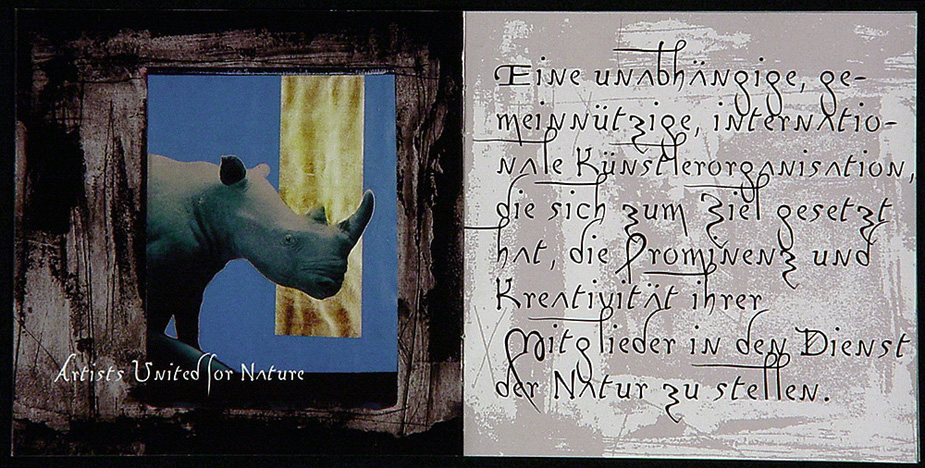 Artists United for Nature
Eine unabhängige, ge-
meinnützige, internatio-
nale Künstlerorganisation,
die sich zum Ziel gesetzt
hat, die Prominenz und
Kreativität ihrer
Mitglieder in den Dienst
der Natur zu stellen.